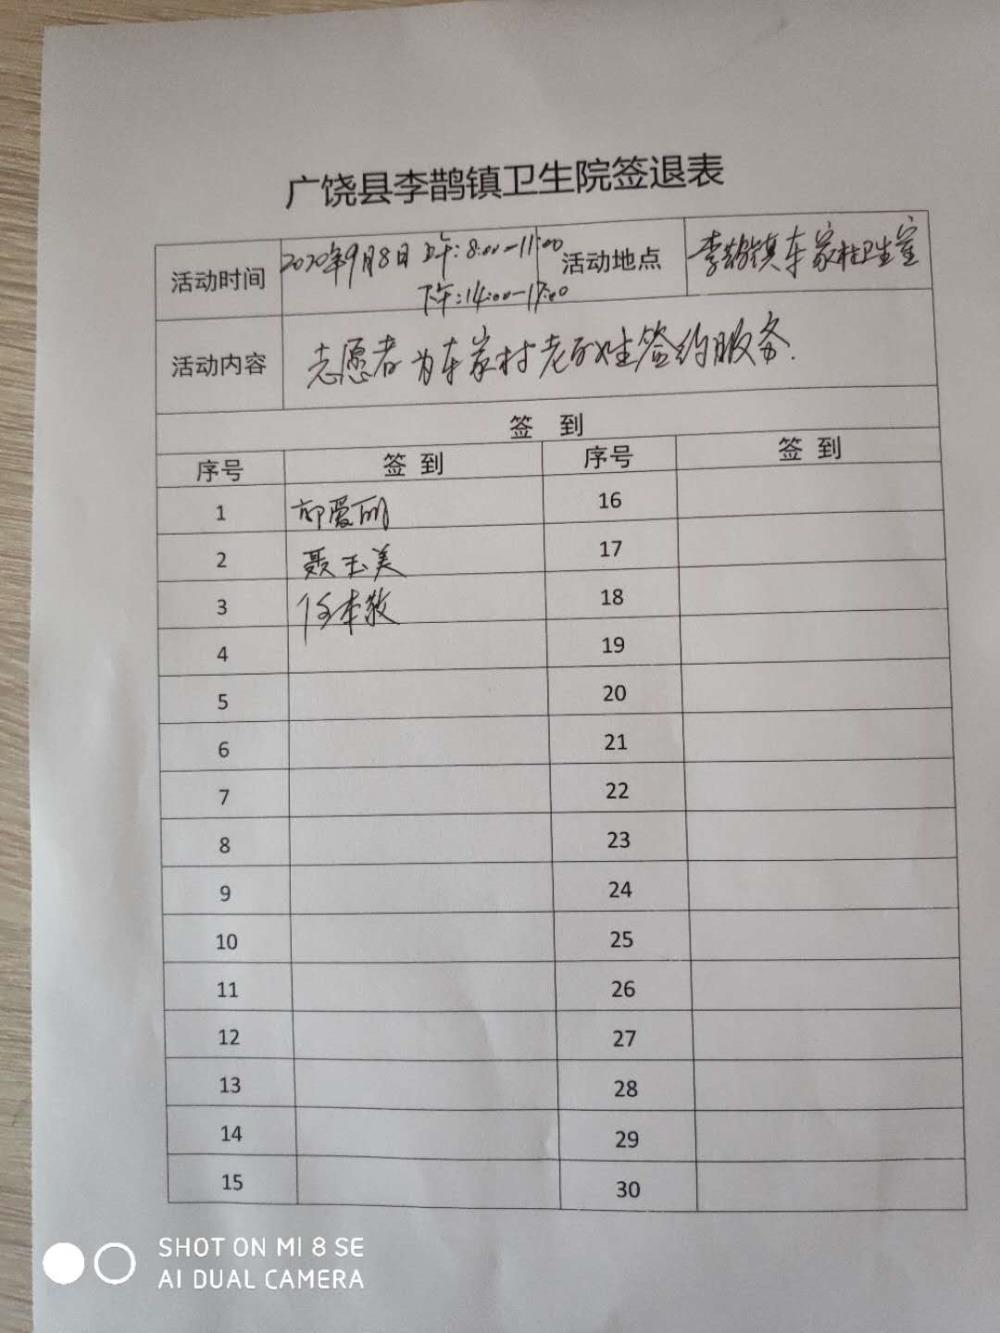 广饶县李鹊镇卫生院签退表
活动时间 2020年9月8日 上午:8:00-11:00 活动地点 李鹊镇车家村卫生室
下午:14:00-17:00
活动内容 志愿者为车家村老百姓签约服务.
签 到
序号 签 到 序号 签 到
1 爱丽 16
2 聂玉美 17
3 任本敬 18
4 19
5 20
6 21
7 22
8 23
9 24
10 25
11 26
12 27
13 28
14 29
15 30
SHOT ON MI 8 SE
AI DUAL CAMERA